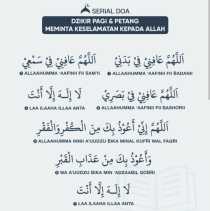 SERIAL DOA
DZIKIR PAGI & PETANG
MEMINTA KESELAMATAN KEPADA ALLAH
اَللَّهُمَّ عَافِنِيْ فِيْ بَدَنِيْ
ALLAAHUMMA 'AAFINII FII BADANII
اَللَّهُمَّ عَافِنِيْ فِيْ سَمْعِيْ
ALLAAHUMMA 'AAFINII FII SAM'II
اَللَّهُمَّ عَافِنِيْ فِيْ بَصَرِيْ
ALLAAHUMMA 'AAFINII FII BASHORII
لَا إِلَـٰهَ إِلَّا أَنْتَ
LAA ILAAHA ILLAA ANTA
اَللَّهُمَّ إِنِّيْ أَعُوْذُ بِكَ مِنَ الْكُفْرِ وَالْفَقْرِ
ALLAAHUMMA INNII A'UUDZU BIKA MINAL KUFRI WAL FAQRI
وَأَعُوْذُ بِكَ مِنْ عَذَابِ الْقَبْرِ
WA A'UUDZU BIKA MIN 'ADZAABIL QOBRI
لَا إِلَـٰهَ إِلَّا أَنْتَ
LAA ILAAHA ILLAA ANTA